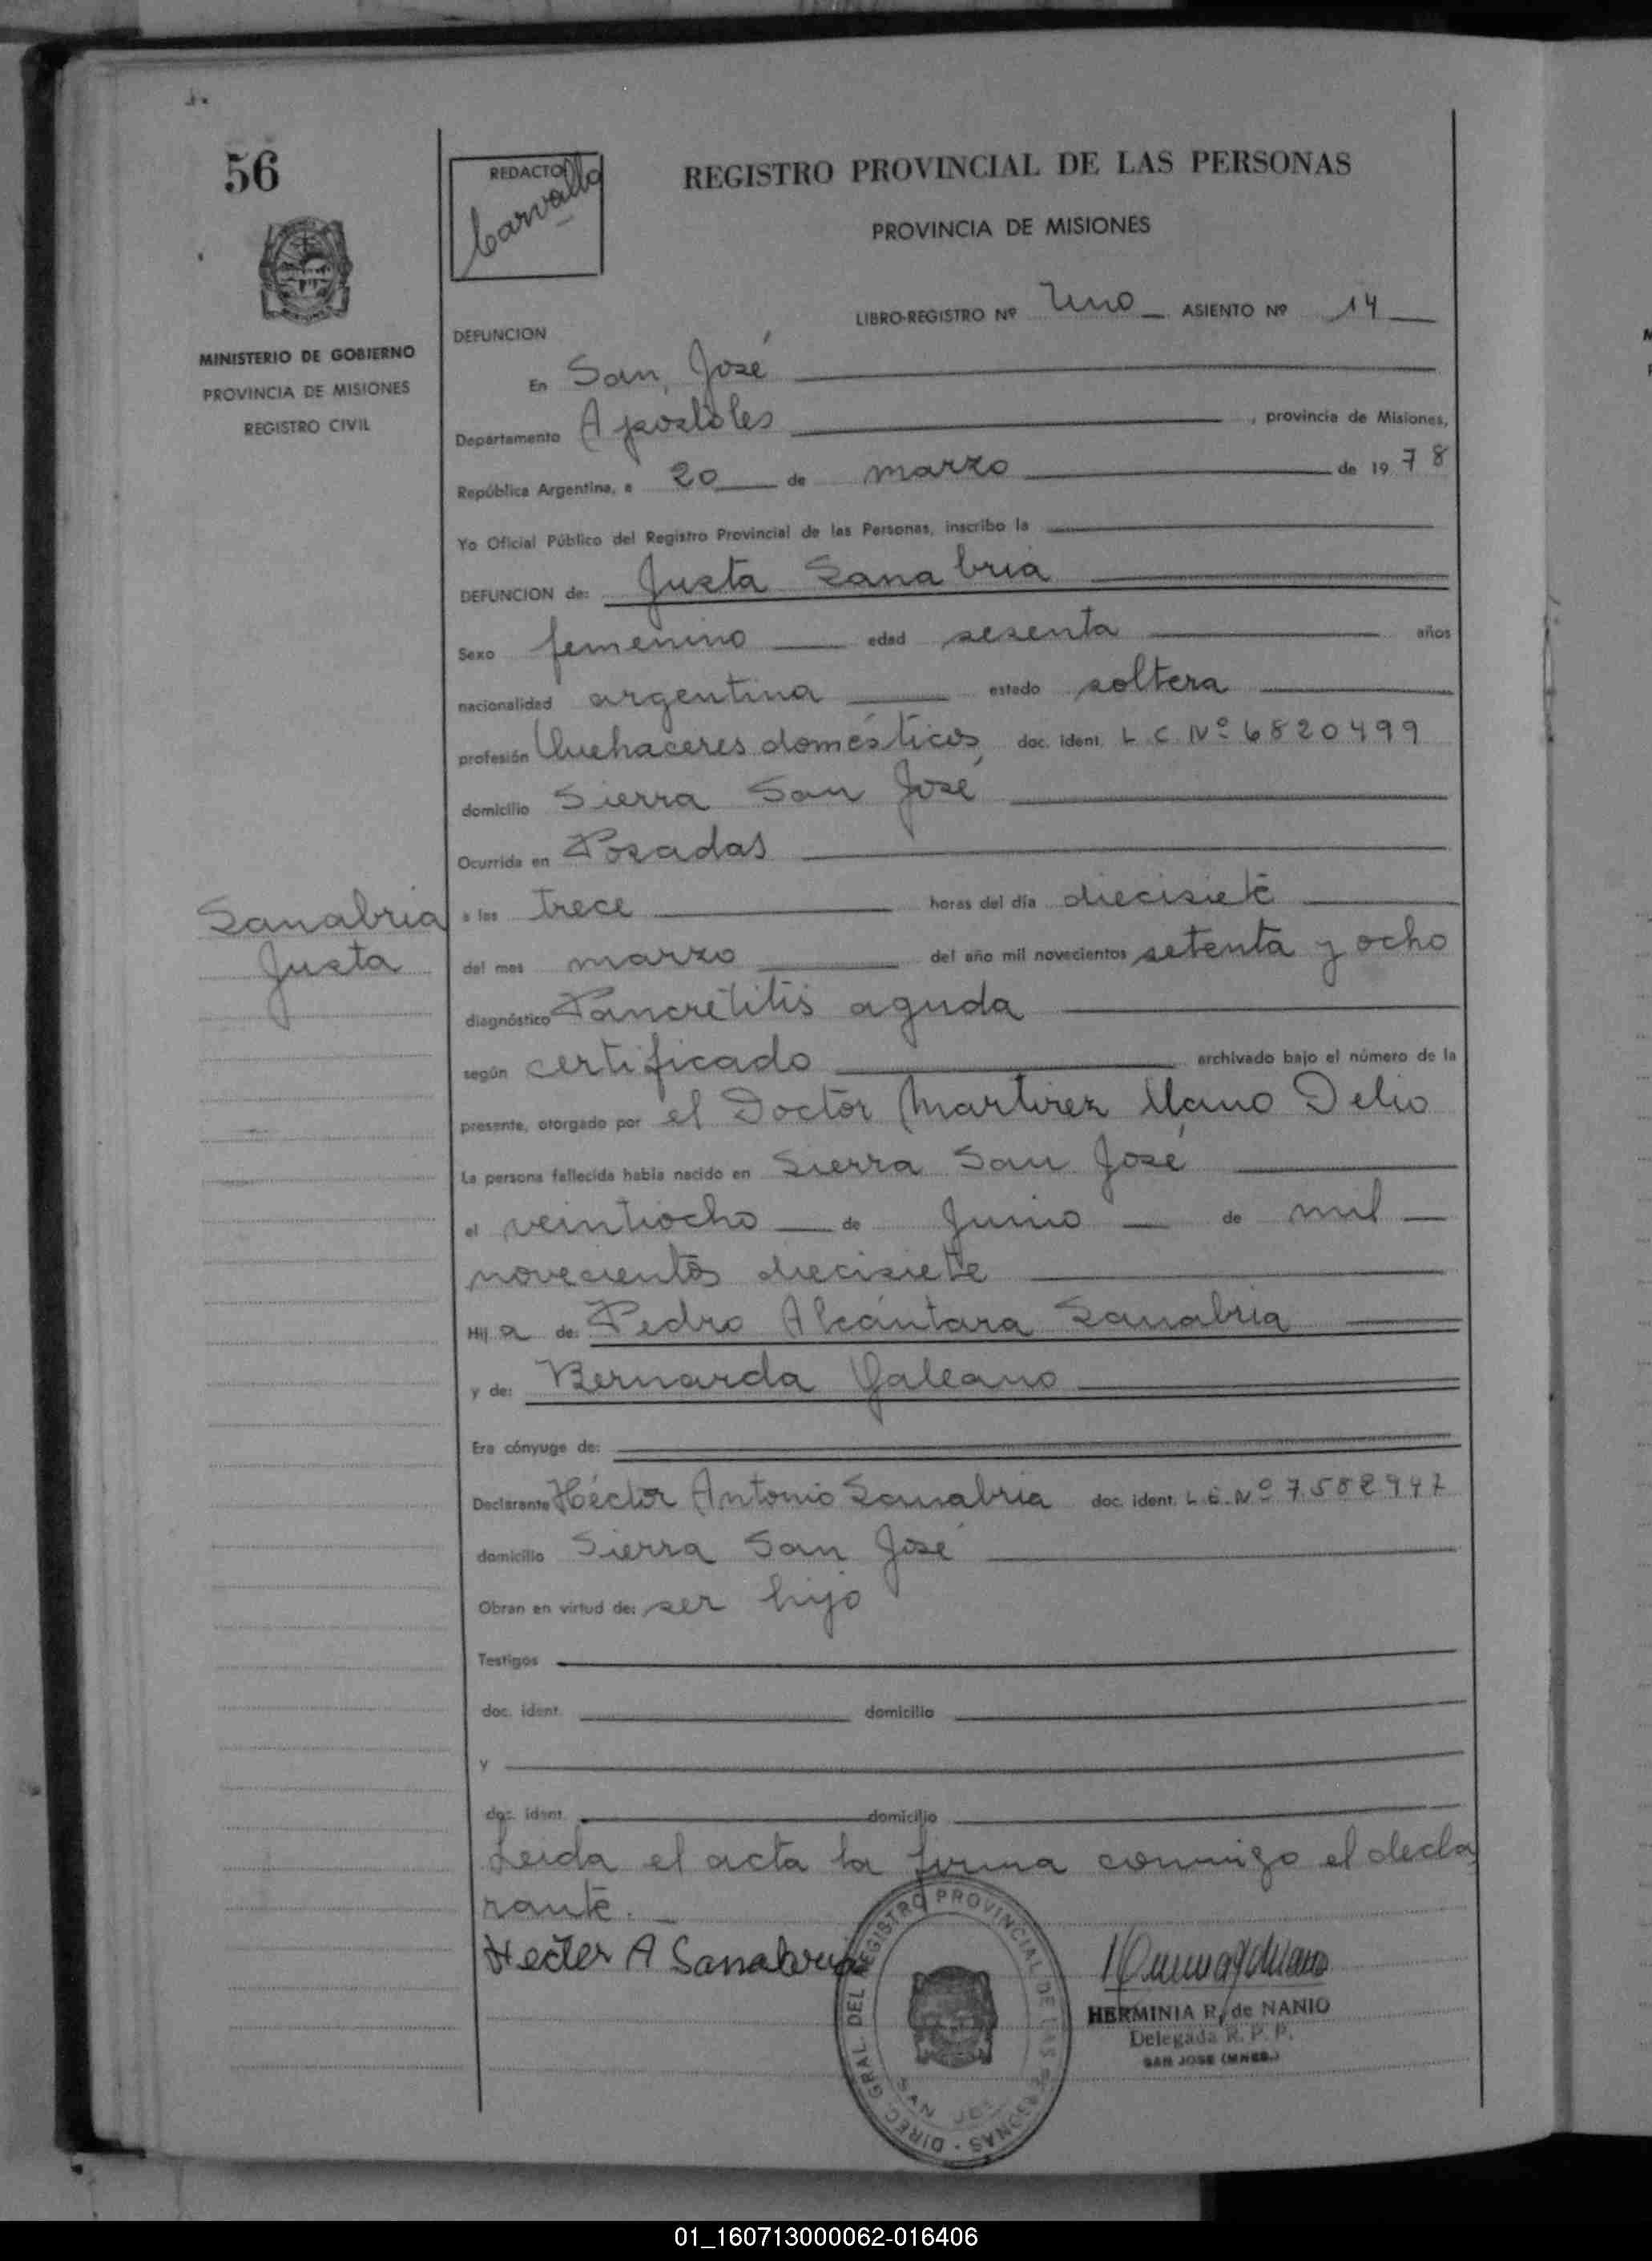 56
REDACTO
Carvallo
REGISTRO PROVINCIAL DE LAS PERSONAS
PROVINCIA DE MISIONES
LIBRO-REGISTRO Nº Uno ASIENTO Nº 14
DEFUNCION
MINISTERIO DE GOBIERNO
PROVINCIA DE MISIONES
REGISTRO CIVIL
En San José
Departamento Apóstoles, provincia de Misiones,
República Argentina, a 20 de marzo de 1978
Yo Oficial Público del Registro Provincial de las Personas, inscribo la
DEFUNCION de: Justa Sanabria
Sexo femenino edad sesenta años
nacionalidad argentina estado soltera
profesión Quehaceres domésticos doc. ident. L C Nº 6820499
domicilio Sierra San José
Ocurrida en Posadas
Sanabria
Justa
a las trece horas del día diecisiete
del mes marzo del año mil novecientos setenta y ocho
diagnóstico Pancretitis aguda
según certificado archivado bajo el número de la
presente, otorgado por el Doctor Martirez Llano Delio
La persona fallecida había nacido en Sierra San José
el veintiocho de Junio de mil
novecientos diecisiete
Hij a de: Pedro Alcántara Sanabria
y de: Bernarda Galeano
Era cónyuge de:
Declarante Héctor Antonio Sanabria doc. ident. L.E. Nº 7.582947
domicilio Sierra San José
Obran en virtud de: ser hijo
Testigos
doc. ident. domicilio
y
doc. ident. domicilio
Leida el acta la firma conmigo el decla
rante.
Hecter A Sanabria
DIREC. GRAL. DEL REGISTRO PROVINCIAL DE LAS PERSONAS
SAN JOSE
HERMINIA R. de NANIO
Delegada R. P. P.
SAN JOSE (MNES.)
01_160713000062-016406